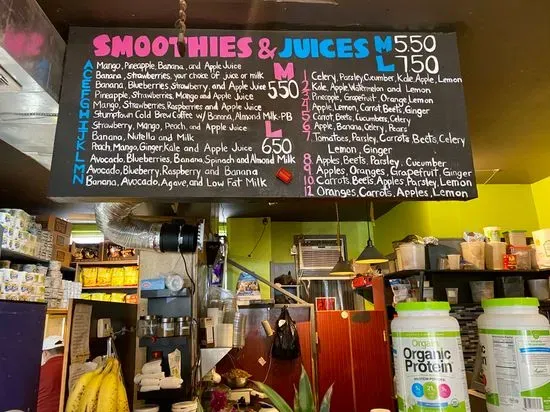 SMOOTHIES & JUICES M 5.50
L 7.50
Mango, Pineapple, Banana, and Apple Juice
Banana, Strawberries, your choice of juice or milk M
Banana, Blueberries Strawberry, and Apple Juice 5.50
Pineapple, Strawberries, Mango and Apple Juice
Mango, Strawberries, Raspberries and Apple Juice
Stumptown Cold Brew Coffee w/ Banana, Almond Milk-PB
Strawberry, Mango, Peach, and Apple Juice L
Banana, Nutella and Milk 6.50
Peach, Mango, Ginger, Kale and Apple Juice
Avocado, Blueberries, Banana, Spinach and Almond Milk
Avocado, Blueberry, Raspberry and Banana
Banana, Avocado, Agave, and Low Fat Milk
1 Celery, Parsley, Cucumber, Kale Apple, Lemon
2 Kale, Apple, Watermelon and Lemon
3 Pineapple, Grapefruit Orange, Lemon
4 Apple, Lemon, Carrot, Beets, Ginger
5 Carrot, Beets, Cucumbers, Celery
6 Apple, Banana, Celery, Pears
7 Tomatoes, Parsley, Carrots Beets, Celery
Lemon, Ginger
8 Apples, Beets, Parsley, Cucumber
9 Apples, Oranges, Grapefruit, Ginger
10 Carrots, Beets, Apples, Parsley, Lemon
12 Oranges, Carrots, Apples, Lemon
Orgain
Organic
Protein